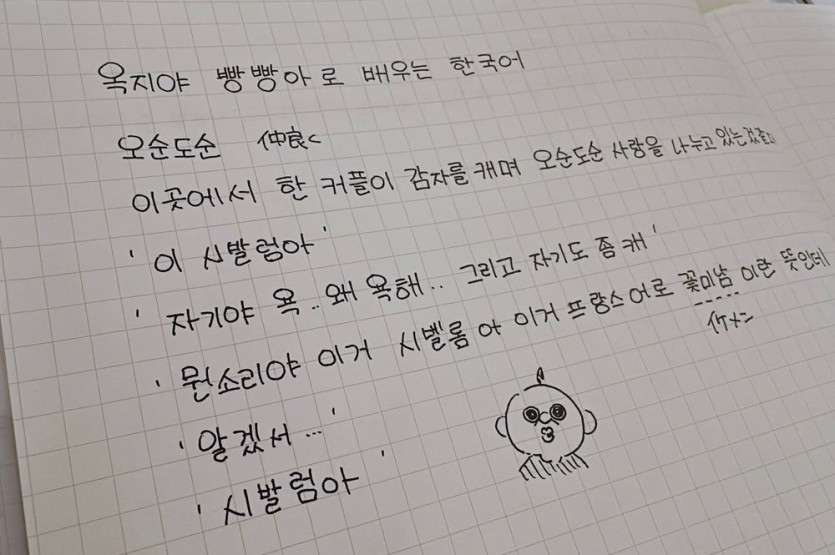 옥지야 빵빵아로 배우는 한국어
오순도순 仲良く
이곳에서 한 커플이 감자를 캐며 오순도순 사랑을 나누고 있는
' 이 시발럼아 '
' 자기야 욕.. 왜 욕해.. 그리고 자기도 좀 캐 '
' 뭔소리야 이거 시벨롬아 이거 프랑스어로 꽃미남 이란 뜻인데
イケメン
' 알겠서 ... '
' 시발럼아 '